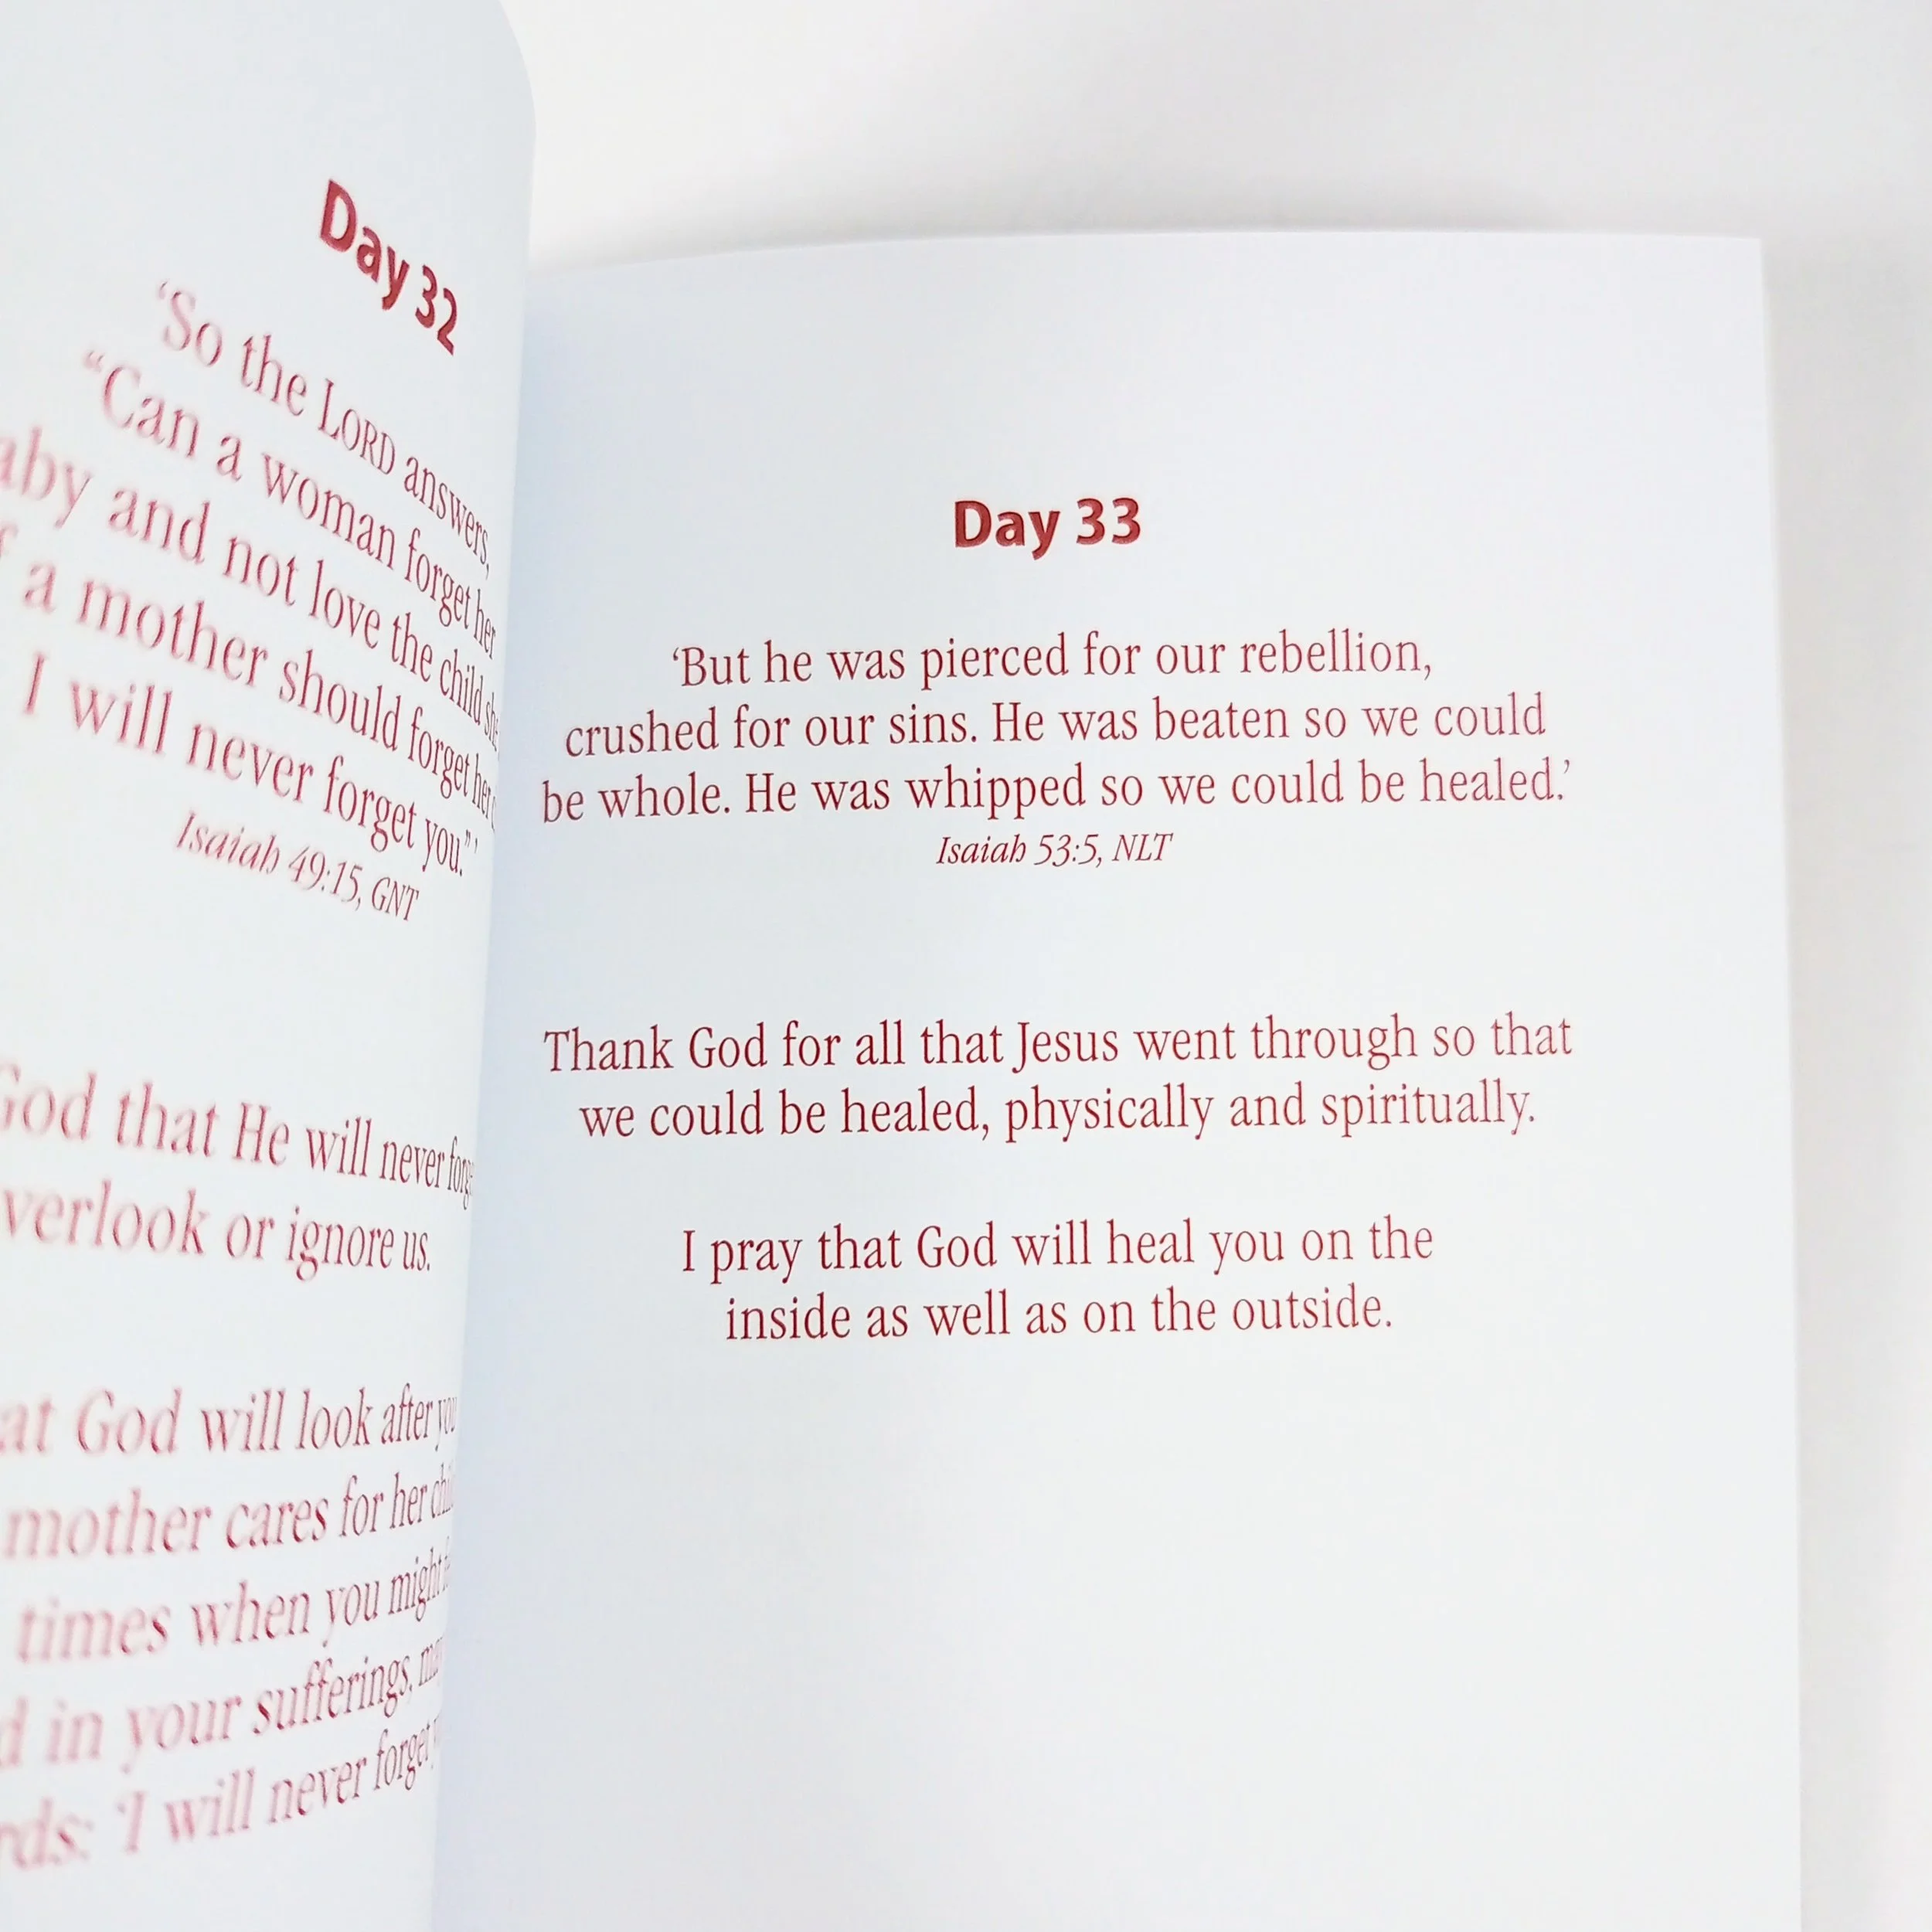 Day 32
‘So the LORD answers,
“Can a woman forget her
and not love the child
a mother should forget her
I will never forget you.”’
Isaiah 49:15, GNT
that He will never
or ignore us.
God will look after
mother cares for her
times when you might
in your sufferings,
‘I will never forget
Day 33
‘But he was pierced for our rebellion,
crushed for our sins. He was beaten so we could
be whole. He was whipped so we could be healed.’
Isaiah 53:5, NLT
Thank God for all that Jesus went through so that
we could be healed, physically and spiritually.
I pray that God will heal you on the
inside as well as on the outside.